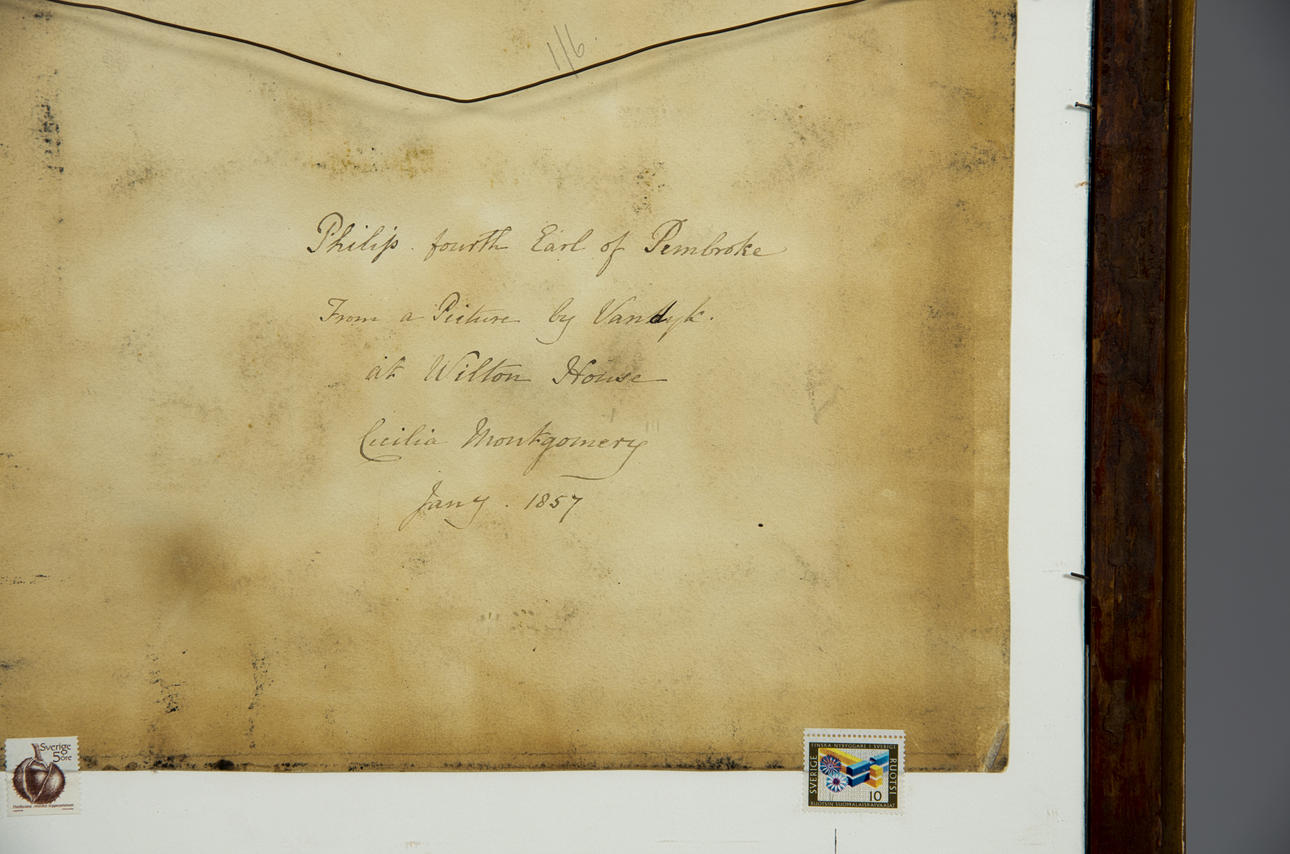 1/6
Philip. fourth Earl of Pembroke
From a Picture by Vandyk.
at Wilton House
Cecilia Montgomery
Jany. 1857
Sverige
5 öre
FINSKA NYBYGGARE I SVERIGE
SVERIGE
RUOTSI
10
RUOTSIN SUOMALAISRAIVAAJAT